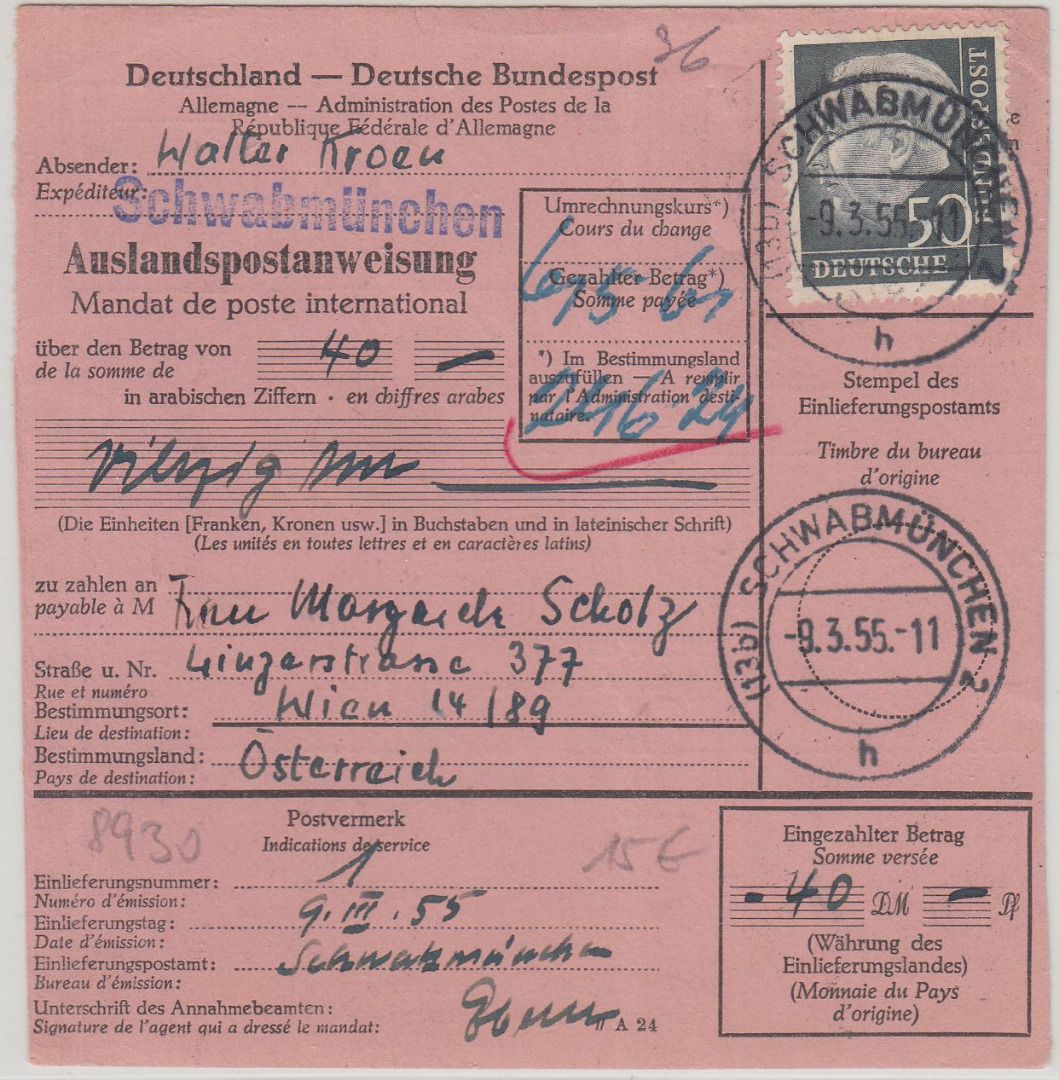 96
Deutschland — Deutsche Bundespost
Allemagne — Administration des Postes de la
République Fédérale d'Allemagne
Absender: Walter Kroen
Expéditeur:
Schwabmünchen
Auslandspostanweisung
Mandat de poste international
über den Betrag von 40 —
de la somme de
in arabischen Ziffern · en chiffres arabes
Umrechnungskurs*)
Cours du change
Gezahlter Betrag*)
Somme payée
*) Im Bestimmungsland
auszufüllen — A remplir
par l'Administration desti-
nataire.
BUNDESPOST
50
DEUTSCHE
(13b) SCHWABMÜNCHEN 2
-9.3.55.-11
h
Stempel des
Einlieferungspostamts
Timbre du bureau
d'origine
Vierzig
(Die Einheiten [Franken, Kronen usw.] in Buchstaben und in lateinischer Schrift)
(Les unités en toutes lettres et en caractères latins)
(13b) SCHWABMÜNCHEN 2
-9.3.55.-11
h
zu zahlen an Frau Margarete Scholz
payable à M
Straße u. Nr. Linzerstrasse 377
Rue et numéro
Bestimmungsort: Wien 14/89
Lieu de destination:
Bestimmungsland: Österreich
Pays de destination:
8930
Postvermerk
Indications de service
15€
Einlieferungsnummer: 1
Numéro d'émission:
Einlieferungstag: 9. III. 55
Date d'émission:
Einlieferungspostamt: Schwabmünchen
Bureau d'émission:
Unterschrift des Annahmebeamten:
Signature de l'agent qui a dressé le mandat:
A 24
Eingezahlter Betrag
Somme versée
- 40 DM — Pf
(Währung des
Einlieferungslandes)
(Monnaie du Pays
d'origine)